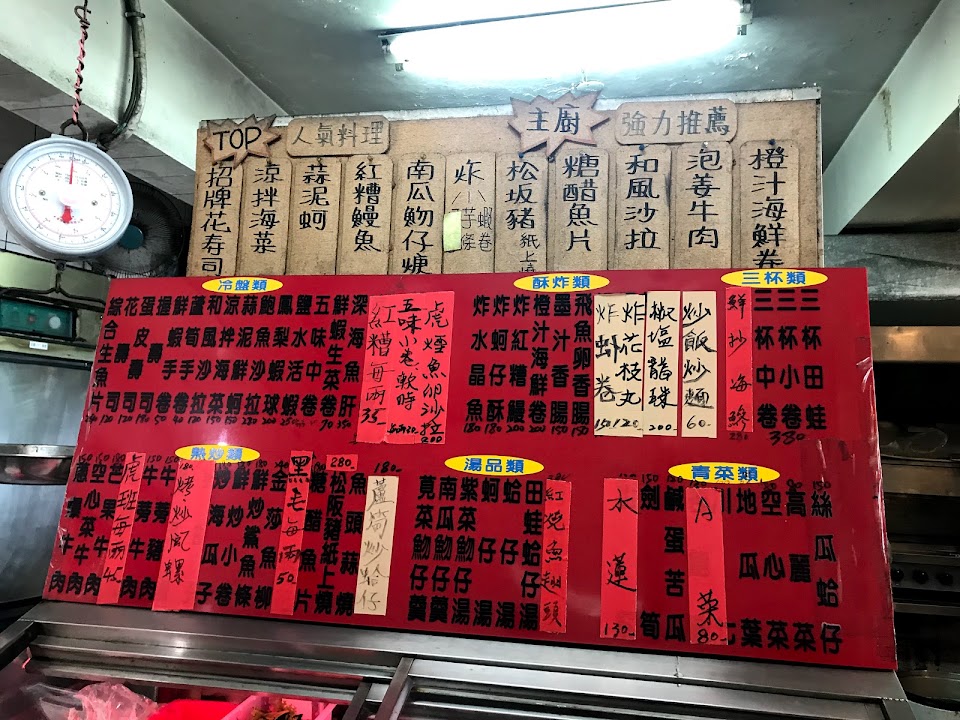 TOP 人氣料理
主廚 強力推薦
招牌花壽司
涼拌海菜
蒜泥蚵
紅糟鰻魚
南瓜魩仔羹
炸 蝦卷 芋條
松坂豬 紙上燒
糖醋魚片
和風沙拉
泡姜牛肉
橙汁海鮮卷
冷盤類
綜合生魚片
花壽司 120
蛋皮壽司 120
握壽司 190
鮮蝦手卷 50
蘆筍手卷 40
和風沙拉 120
涼拌海菜 150
蒜泥鮮蚵 150
鮑魚沙拉
鳳梨蝦球 250
鹽水活蝦
五味
鮮蝦生菜卷 70
深海魚肝 150
紅糟每兩35
五味小卷 軟時
虎煙魚卵沙拉 200
酥炸類
炸水晶魚 180
炸蚵酥 180
炸紅糟鰻 200
橙汁海鮮卷 200
墨汁香腸 150
飛魚卵香腸 150
炸蚵卷 150
炸花枝丸 120
椒塩龍珠 200
炒飯炒麵 60
三杯類
鮮抄海珞 280
三杯中卷
三杯小卷
三杯田蛙 380
熱炒類
蔥爆牛肉
空心菜牛肉
芒果牛肉
虎班每兩45
牛蒡牛肉
牛蒡豬肉
烤‧炒風螺 180
海瓜子
鮮炒小卷
鮮炒鯊魚條
金莎魚柳
黑毛每兩50
糖醋魚片
松阪豬紙上燒 280
魚頭蒜燒
蘆筍炒蛤仔 180
湯品類
莧菜魩仔羹
南瓜魩仔羹
紫菜魩仔湯
蚵仔湯
蛤仔湯
田蛙蛤仔湯
紅燒魚翅頭
青菜類
水蓮 130
劍筍 150
鹹蛋苦瓜 150
A菜 80
地瓜葉 100
空心菜 100
高麗菜 100
絲瓜蛤仔 150